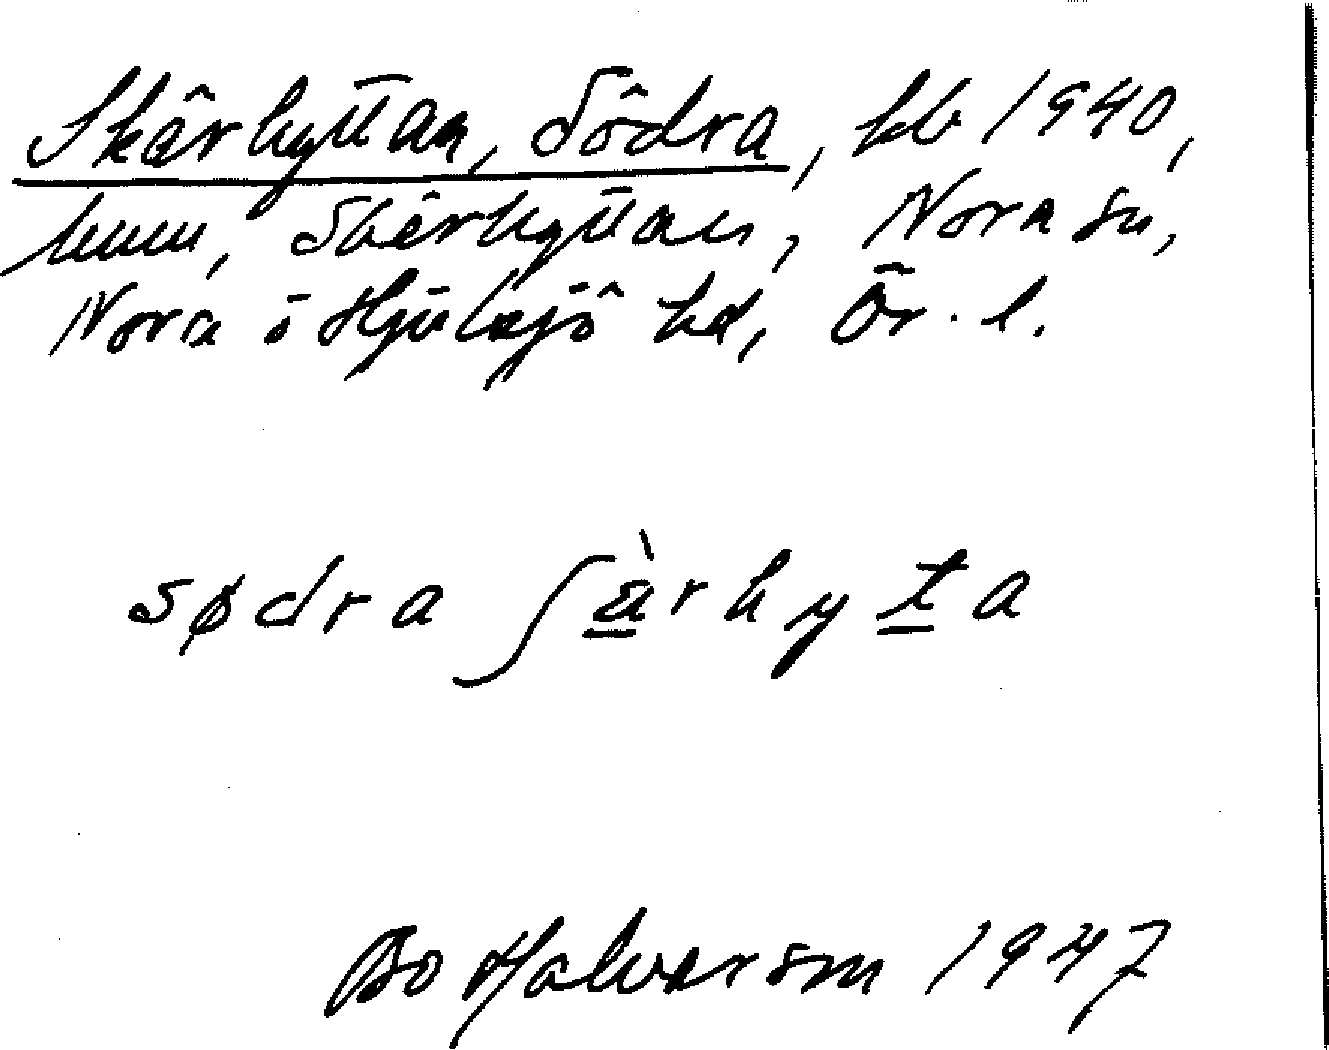 Skärhyttan, Södra, kb 1940,
hmn, Skärhyttan, Nora sn,
Nora o Hjulsjö hd, Ör. l.
södra ʃä̀rhyta
Bo Halvarson 1947